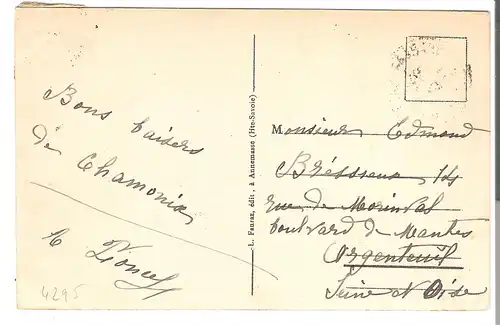 Bons baisers
de Chamonix
L. Fauraz, édit., à Annemasse (Hte-Savoie)
Monsieur Edmond
rue de Morinval
boulevard de Mantes
Argenteuil
Seine et Oise
4295